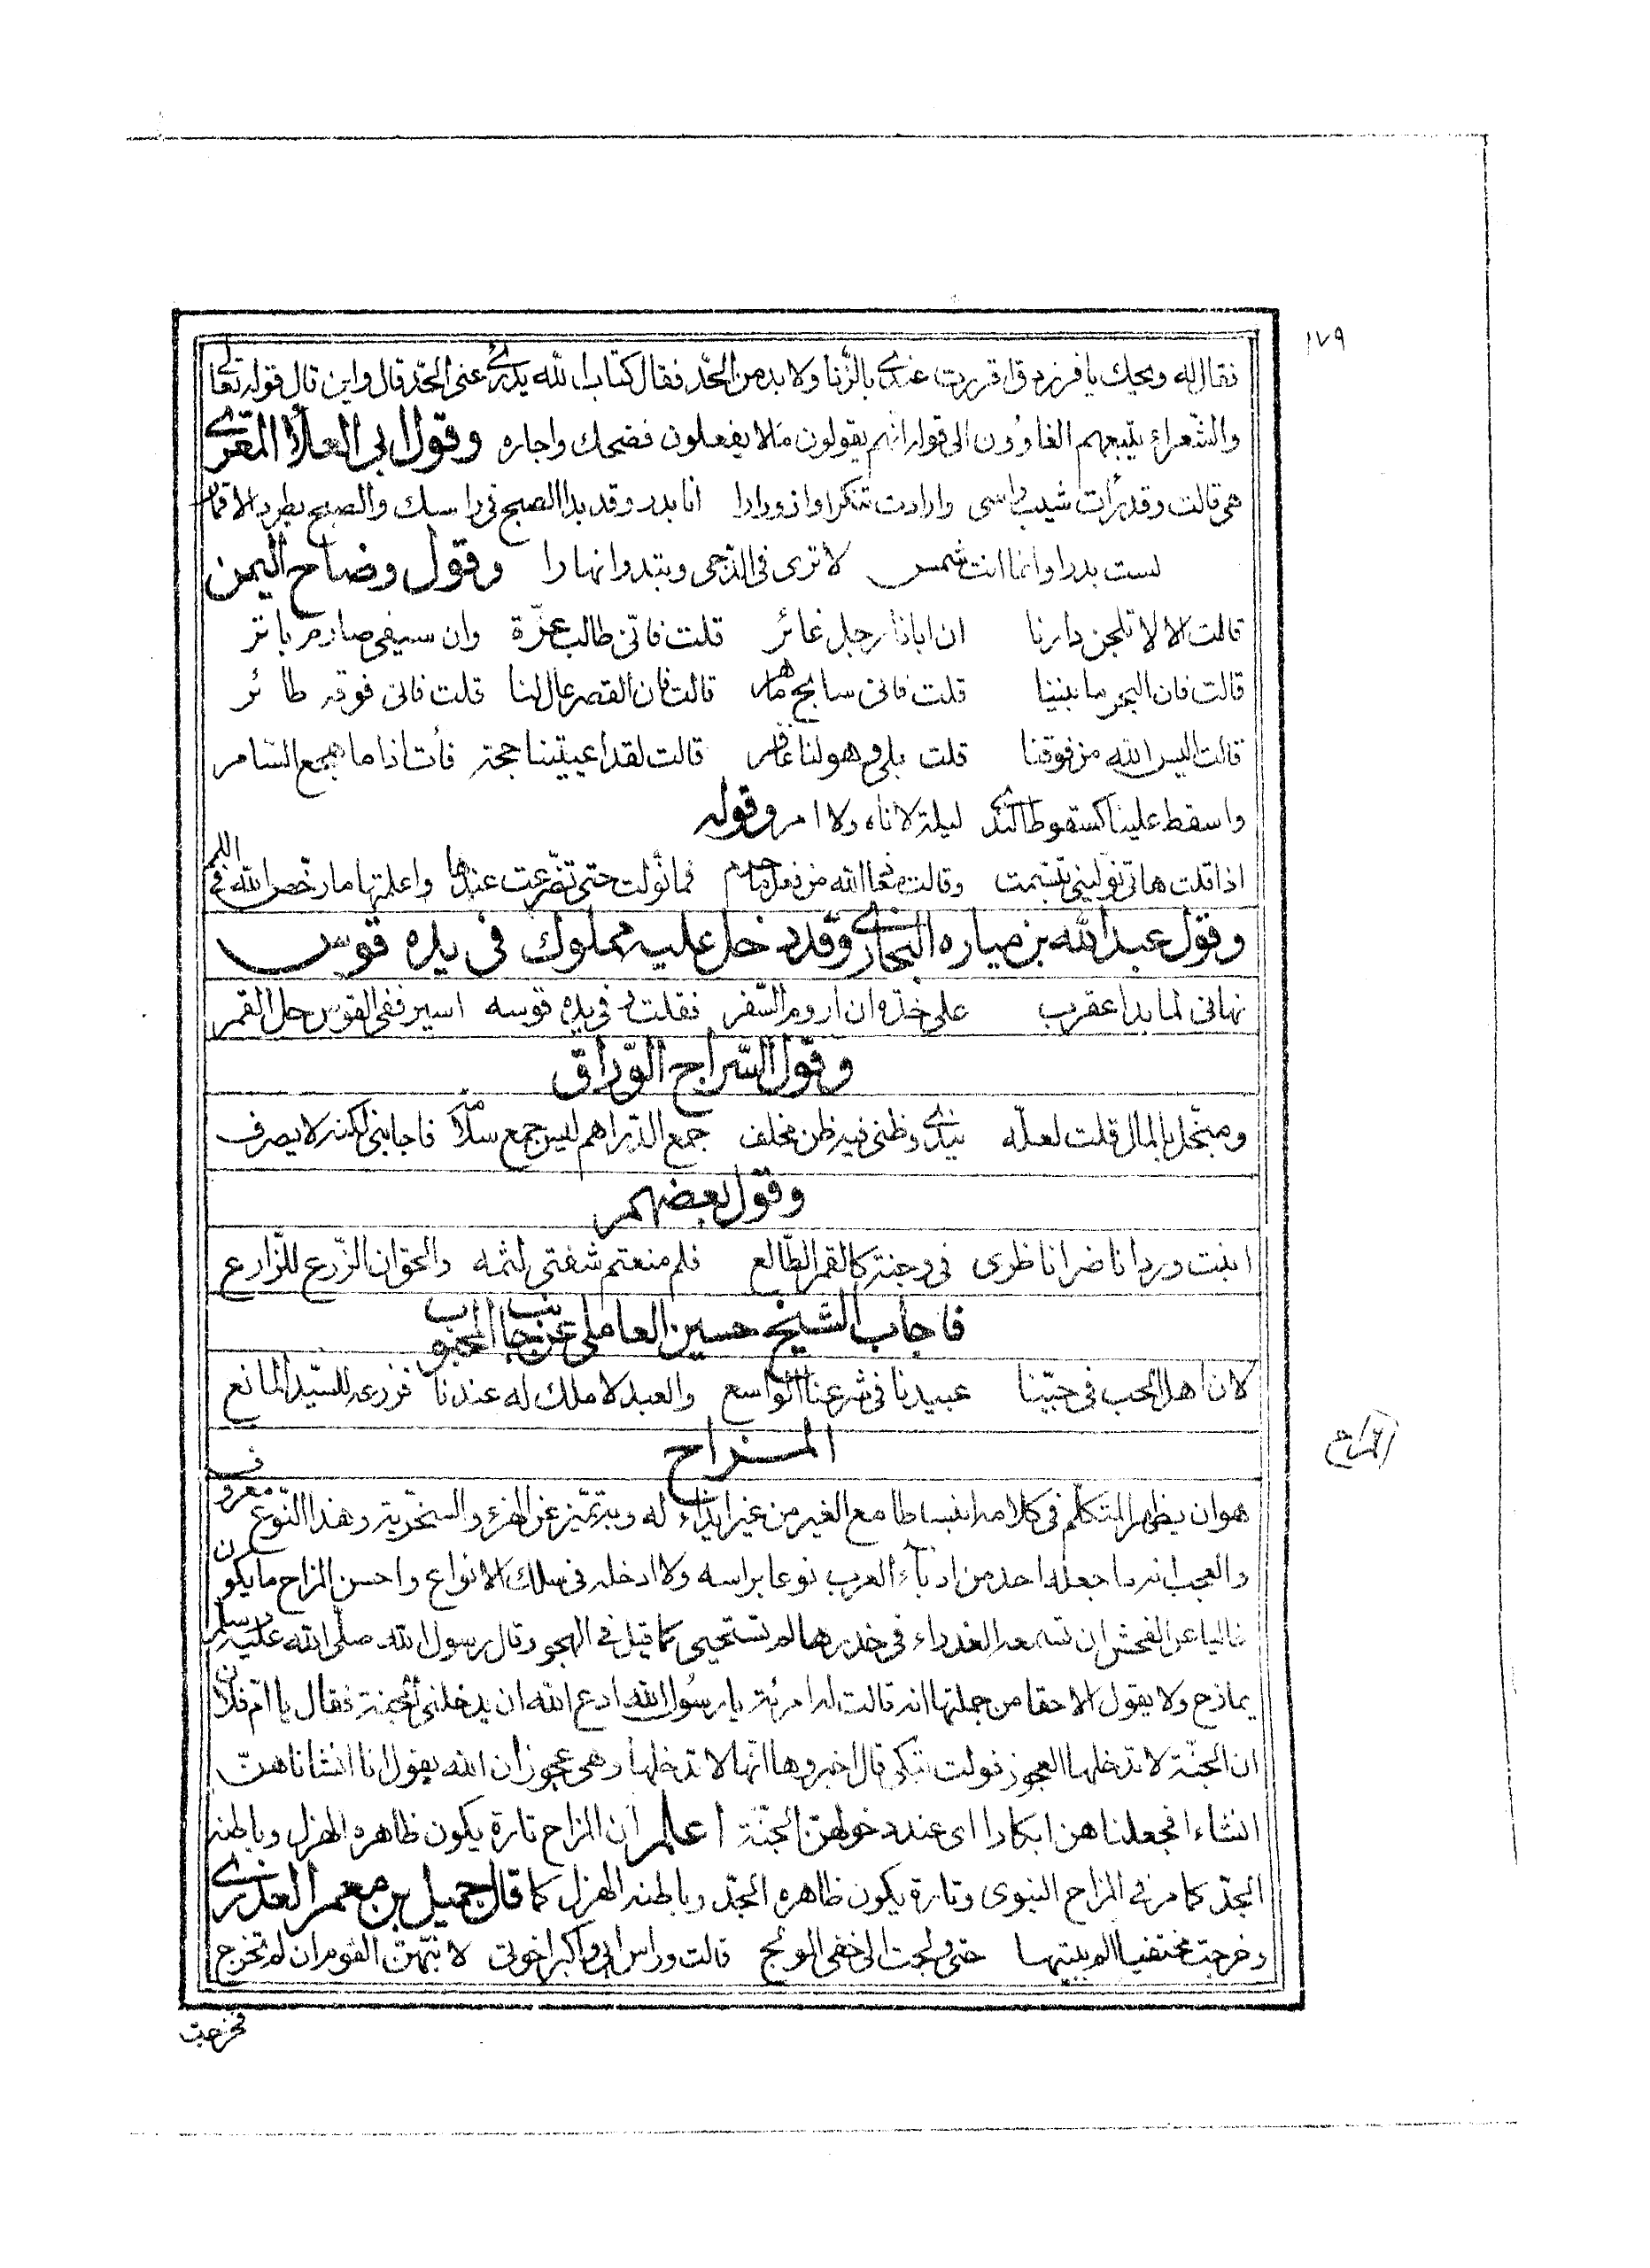 ١٧٩
فقال له ويحك يا فرزدق اقررت عندى بالزّنا ولا بد من الحّد فقال كتاب الله يدرئ عنى الحّد قال واين قال قوله تعالى
والشّعراء يتبعهم الغاوُون الى قوله انهم يقولون ما لا يفعلون فضحك واجازه وقول ابى العلاء المقرى
هى قالت وقد رأت شيب راسى وارادت تنكرا وازورارا انا بدر وقد بدا الصبح فى راسك والصبح يطرد الاقمارا
لست بدرا وانما انت شمس لا ترى فى الدّجى وتبدو انهارا وقول وضاح اليمن
قالت الا لا تلجن دارنا ان ابانا رجل غائر قلت فانّى طالب عزّة وان سيفى صارم باتر
قالت فان البحر ما بيننا قلت فانى سابح ماهر قالت فان القصر عال لنا قلت فانى فوقه طائر
قالت اليس الله من فوقنا قلت بلى وهو لنا غافر قالت لقد اعييتنا حجة فأت اذا ما هجع السّامر
واسقط علينا كسقوط النّدى ليلة لا ناه ولا امر وقوله
اذا قلت هاتى نوّلينى تبسّمت وقالت معاذ الله من فعل ما حرم فما نوّلت حتى تضّرعت عندها واعلمتها ما رخّص الله فى اللمم
وقول عبد الله بن صياره البخارى وقد دخل عليه مملوك فى يده قوس
نهانى لما بدا عقرب على خدّه ان اروم السّفر فقلت وفى يده قوسه اسير ففى القوس حل القمر
وقول السّراج الورّاق
ومبخّل بالمال قلت لعلّه يندى وظنى فيه ظن مخلف جمع الدّراهم ليس جمع سلامة فاجابنى لكنه لا يصرف
وقول بعضهم
انبت وردا ناضرا ناظرى فى وجنة كالقمر الطّالع فلم منعتم شفتى لثمه والحق ان الزّرع للزّارع
فاجاب الشّيخ حسين العاملى عن جانب المحبوب
لان اهل الحب فى حبّنا عبيدنا فى شرعنا الواسع والعبد لا ملك له عندنا فزرعه للسّيد المانع
المزاح
المزاح
هو ان يظهر المتكلّم فى كلامه انبساطا مع الغير من غير ايذاء له وبه تميّز عن الهزء والسّخرية وهذا النّوع معروف
والعجب انه ما جعله احد من ادباء العرب نوعا براسه ولا ادخله فى سلك الانواع واحسن المزاح ما يكون
خاليا عن الفحش ان تسمعه العذراء فى خدرها لم تستحيى كما قيل فى الهجو وقال رسول الله صلّى الله عليه وسلم
يمازح ولا يقول الا حقا من جملتها انه قالت له امرئة يا رسُول الله ادع الله ان يدخلنى الجنة فقال يا امّ فلان
ان الجنّة لا تدخلها العجوز فولت تبكى قال اخبروها انّها لا تدخلها وهى عجوز ان الله يقول انا انشاناهنّ
انشاء فجعلناهن ابكارا اى عند دخولهن الجنّة اعلم ان المزاح تارة يكون ظاهره الهزل وباطنه
الجدّ كما مر فى المزاح النبوى وتارة يكون ظاهره الجدّ وباطنه الهزل كما قال جميل بن معمر العذرى
وخرجت مختفيا الم ببيتها حتى ولجت الى خفى المولج قالت وراس ابى واكبر اخوتى لا نبّهنّ القوم ان لم تخرج
فخرجت